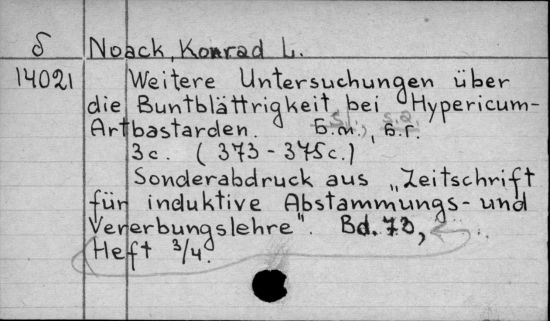 δ Noack, Konrad L.
14021 Weitere Untersuchungen über
die Buntblättrigkeit bei Hypericum-
Artbastarden. Б.м., Б.г.
3c. (373-375c.)
Sonderabdruck aus „Zeitschrift
für induktive Abstammungs- und
Vererbungslehre". Bd. 73,
Heft 3/4.